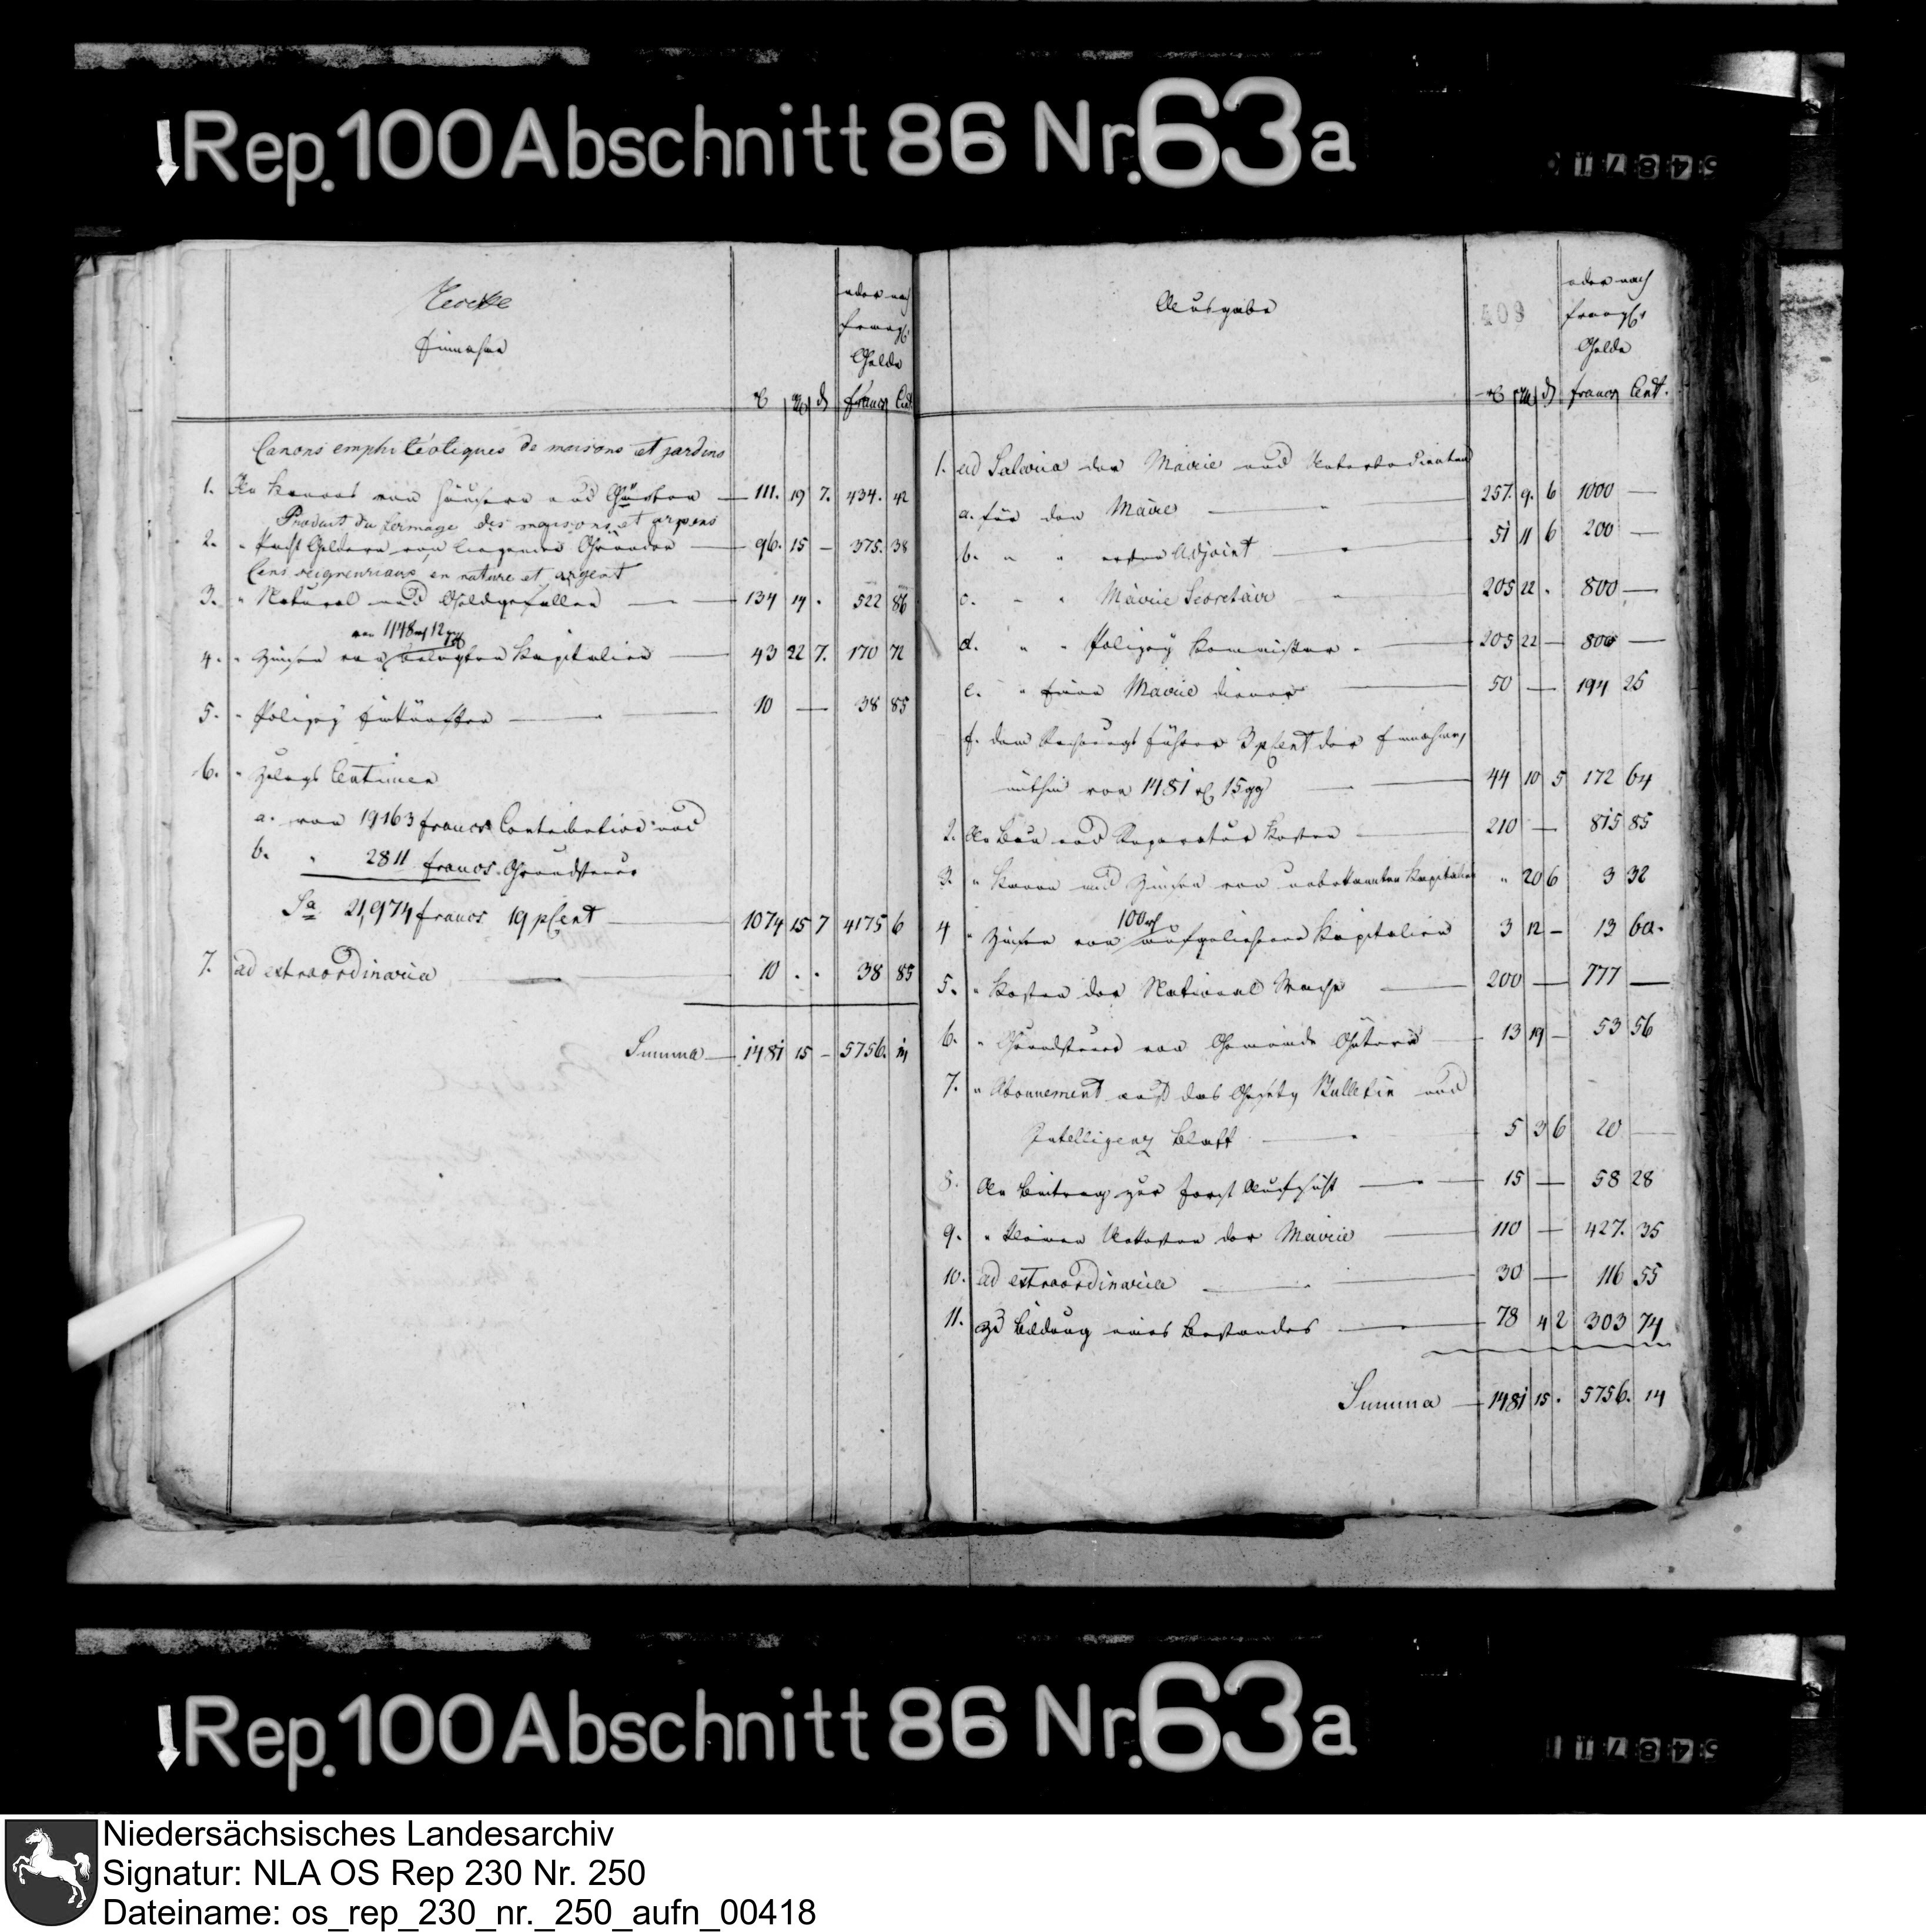 Rep. 100 Abschnitt 86 Nr. 63a
Einnahme
oder nach
französ.
Gelde
francs Cent.
Canons emphitéotiques de maisons et jardins
1. An Canons von Häusern und Gärten 111. 19 7. 434. 42
Produit du fermage des maisons et arpens
2. " Pacht Geldern von liegenden Gründen 96. 15 — 375. 38
Cens seigneuriaux en nature et argent
3. " Natural und Geldgefällen 134 19 . 522 86
von 1148 12
4. " Zinsen von belegten Kapitalien 43 22 7. 170 72
5. " Polizey Einkünften 10 — 38 85
6. " Zulags Centimen
a. von 19163 francs Contribution und
b. " 2811 francs Grundsteuer
Sa 21,974 francs 19 pCent 1074 15 7 4175 6
7. ad extraordinaria 10 . . 38 85
Summa 1481 15 — 5756. 14
Ausgabe
409
oder nach
französ.
Gelde
francs Cent.
1. ad Salaria der Mairie und Unterbedienten
a. für den Maire 257. 9. 6 1000 —
b. " " ersten Adjoint 51 11 6 200 —
c. " " Mairie Secretair 205 22 . 800 —
d. " " Polizey Kommissar 205 22 — 800 —
e. " einen Mairie diener 50 — 194 25
f. dem Rechnungsführer 3 pCent der Einnahme,
mithin von 1481 rt 15 gg 44 10 5 172 64
2. An Bau und Reparatur Kosten 210 — 815 85
3. " Canon und Zinsen von unbekannten Kapitalien " 20 6 3 32
100 rt
4 " Zinsen von aufgeliehenen Kapitalien 3 12 — 13 60.
5. " Kosten der National Wache 200 — 777 —
6. " Grundsteuer von Gemeinde Gütern 13 19 — 53 56
7. " Abonnement auf das Gesetz Bulletin und
Intelligenz Blatt 5 3 6 20 —
8. An Beitrag zur Forst Aufsicht 15 — 58 28
9. " kleinen Unkosten der Mairie 110 — 427. 35
10. ad extraordinaria 30 — 116 55
11. zu Bildung eines Bestandes 78 4 2 303 74
Summa 1481 15 . 5756. 14
Rep. 100 Abschnitt 86 Nr. 63a
Niedersächsisches Landesarchiv
Signatur: NLA OS Rep 230 Nr. 250
Dateiname: os_rep_230_nr._250_aufn_00418